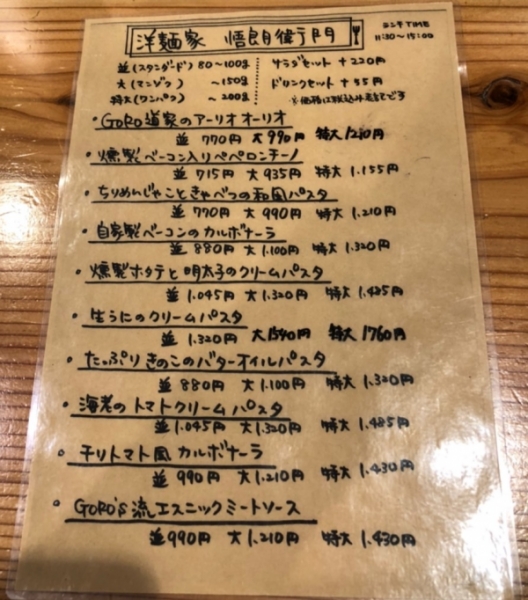 洋麺家 悟朗衛門
ランチTIME
11:30~15:00
並(スタンダード) 80~100g
大(マンゾク) ~150g
特大(ワンパク) ~200g
サラダセット +220円
ドリンクセット +55円
※価格は税込み表記です
・GORO道家のアーリオオーリオ
並 770円 大 990円 特大 1210円
・燻製ベーコン入りペペロンチーノ
並 715円 大 935円 特大 1.155円
・ちりめんじゃことキャベツの和風パスタ
並 770円 大 990円 特大 1.210円
・自家製ベーコンのカルボナーラ
並 880円 大 1.100円 特大 1.320円
・燻製ホタテと明太子のクリームパスタ
並 1.045円 大 1.320円 特大 1.485円
・生うにのクリームパスタ
並 1.320円 大1540円 特大 1760円
・たっぷりきのこのバターオイルパスタ
並 880円 大 1.100円 特大 1.320円
・海老のトマトクリームパスタ
並 1.045円 大 1.320円 特大 1.485円
・チリトマト風カルボナーラ
並 990円 大 1.210円 特大 1.430円
・GORO'S流エスニックミートソース
並 990円 大 1.210円 特大 1.430円